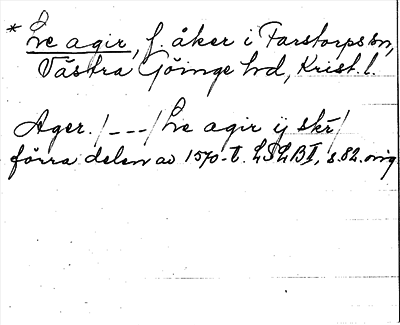 * Lre agir, f. åker i Farstorps sn,
Västra Göinge hd, Krist. l.
Ager. /---/ Lre agir ij skr /
förra delen av 1570-t. LSLB I, s. 82. orig.